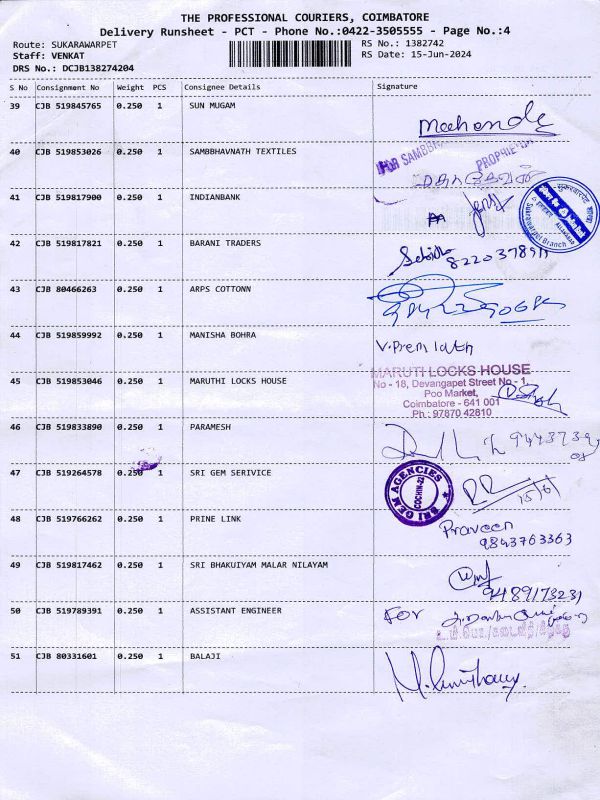 THE PROFESSIONAL COURIERS, COIMBATORE
Delivery Runsheet - PCT - Phone No.:0422-3505555 - Page No.:4
Route: SUKARAWARPET RS No.: 1382742
Staff: VENKAT RS Date: 15-Jun-2024
DRS No.: DCJB138274204
S No Consignment No Weight PCS Consignee Details Signature
39 CJB 519845765 0.250 1 SUN MUGAM
40 CJB 519853026 0.250 1 SAMBBHAVNATH TEXTILES
FOR SAMBBH PROPRIETOR
41 CJB 519817900 0.250 1 INDIANBANK
Sukrawarpet Branch
42 CJB 519817821 0.250 1 BARANI TRADERS
43 CJB 80466263 0.250 1 ARPS COTTONN
44 CJB 519859992 0.250 1 MANISHA BOHRA
V.Prem lath
45 CJB 519853046 0.250 1 MARUTHI LOCKS HOUSE
MARUTI LOCKS HOUSE
No - 18, Devangapet Street No - 1,
Poo Market,
Coimbatore - 641 001
Ph.: 97870 42810
46 CJB 519833890 0.250 1 PARAMESH
47 CJB 519264578 0.250 1 SRI GEM SERIVICE
SRI GEM AGENCIES
COCHIN-22
15/6/
48 CJB 519766262 0.250 1 PRINE LINK
Praveen
9843763363
49 CJB 519817462 0.250 1 SRI BHAKUIYAM MALAR NILAYAM
9489173231
50 CJB 519789391 0.250 1 ASSISTANT ENGINEER
For
51 CJB 80331601 0.250 1 BALAJI